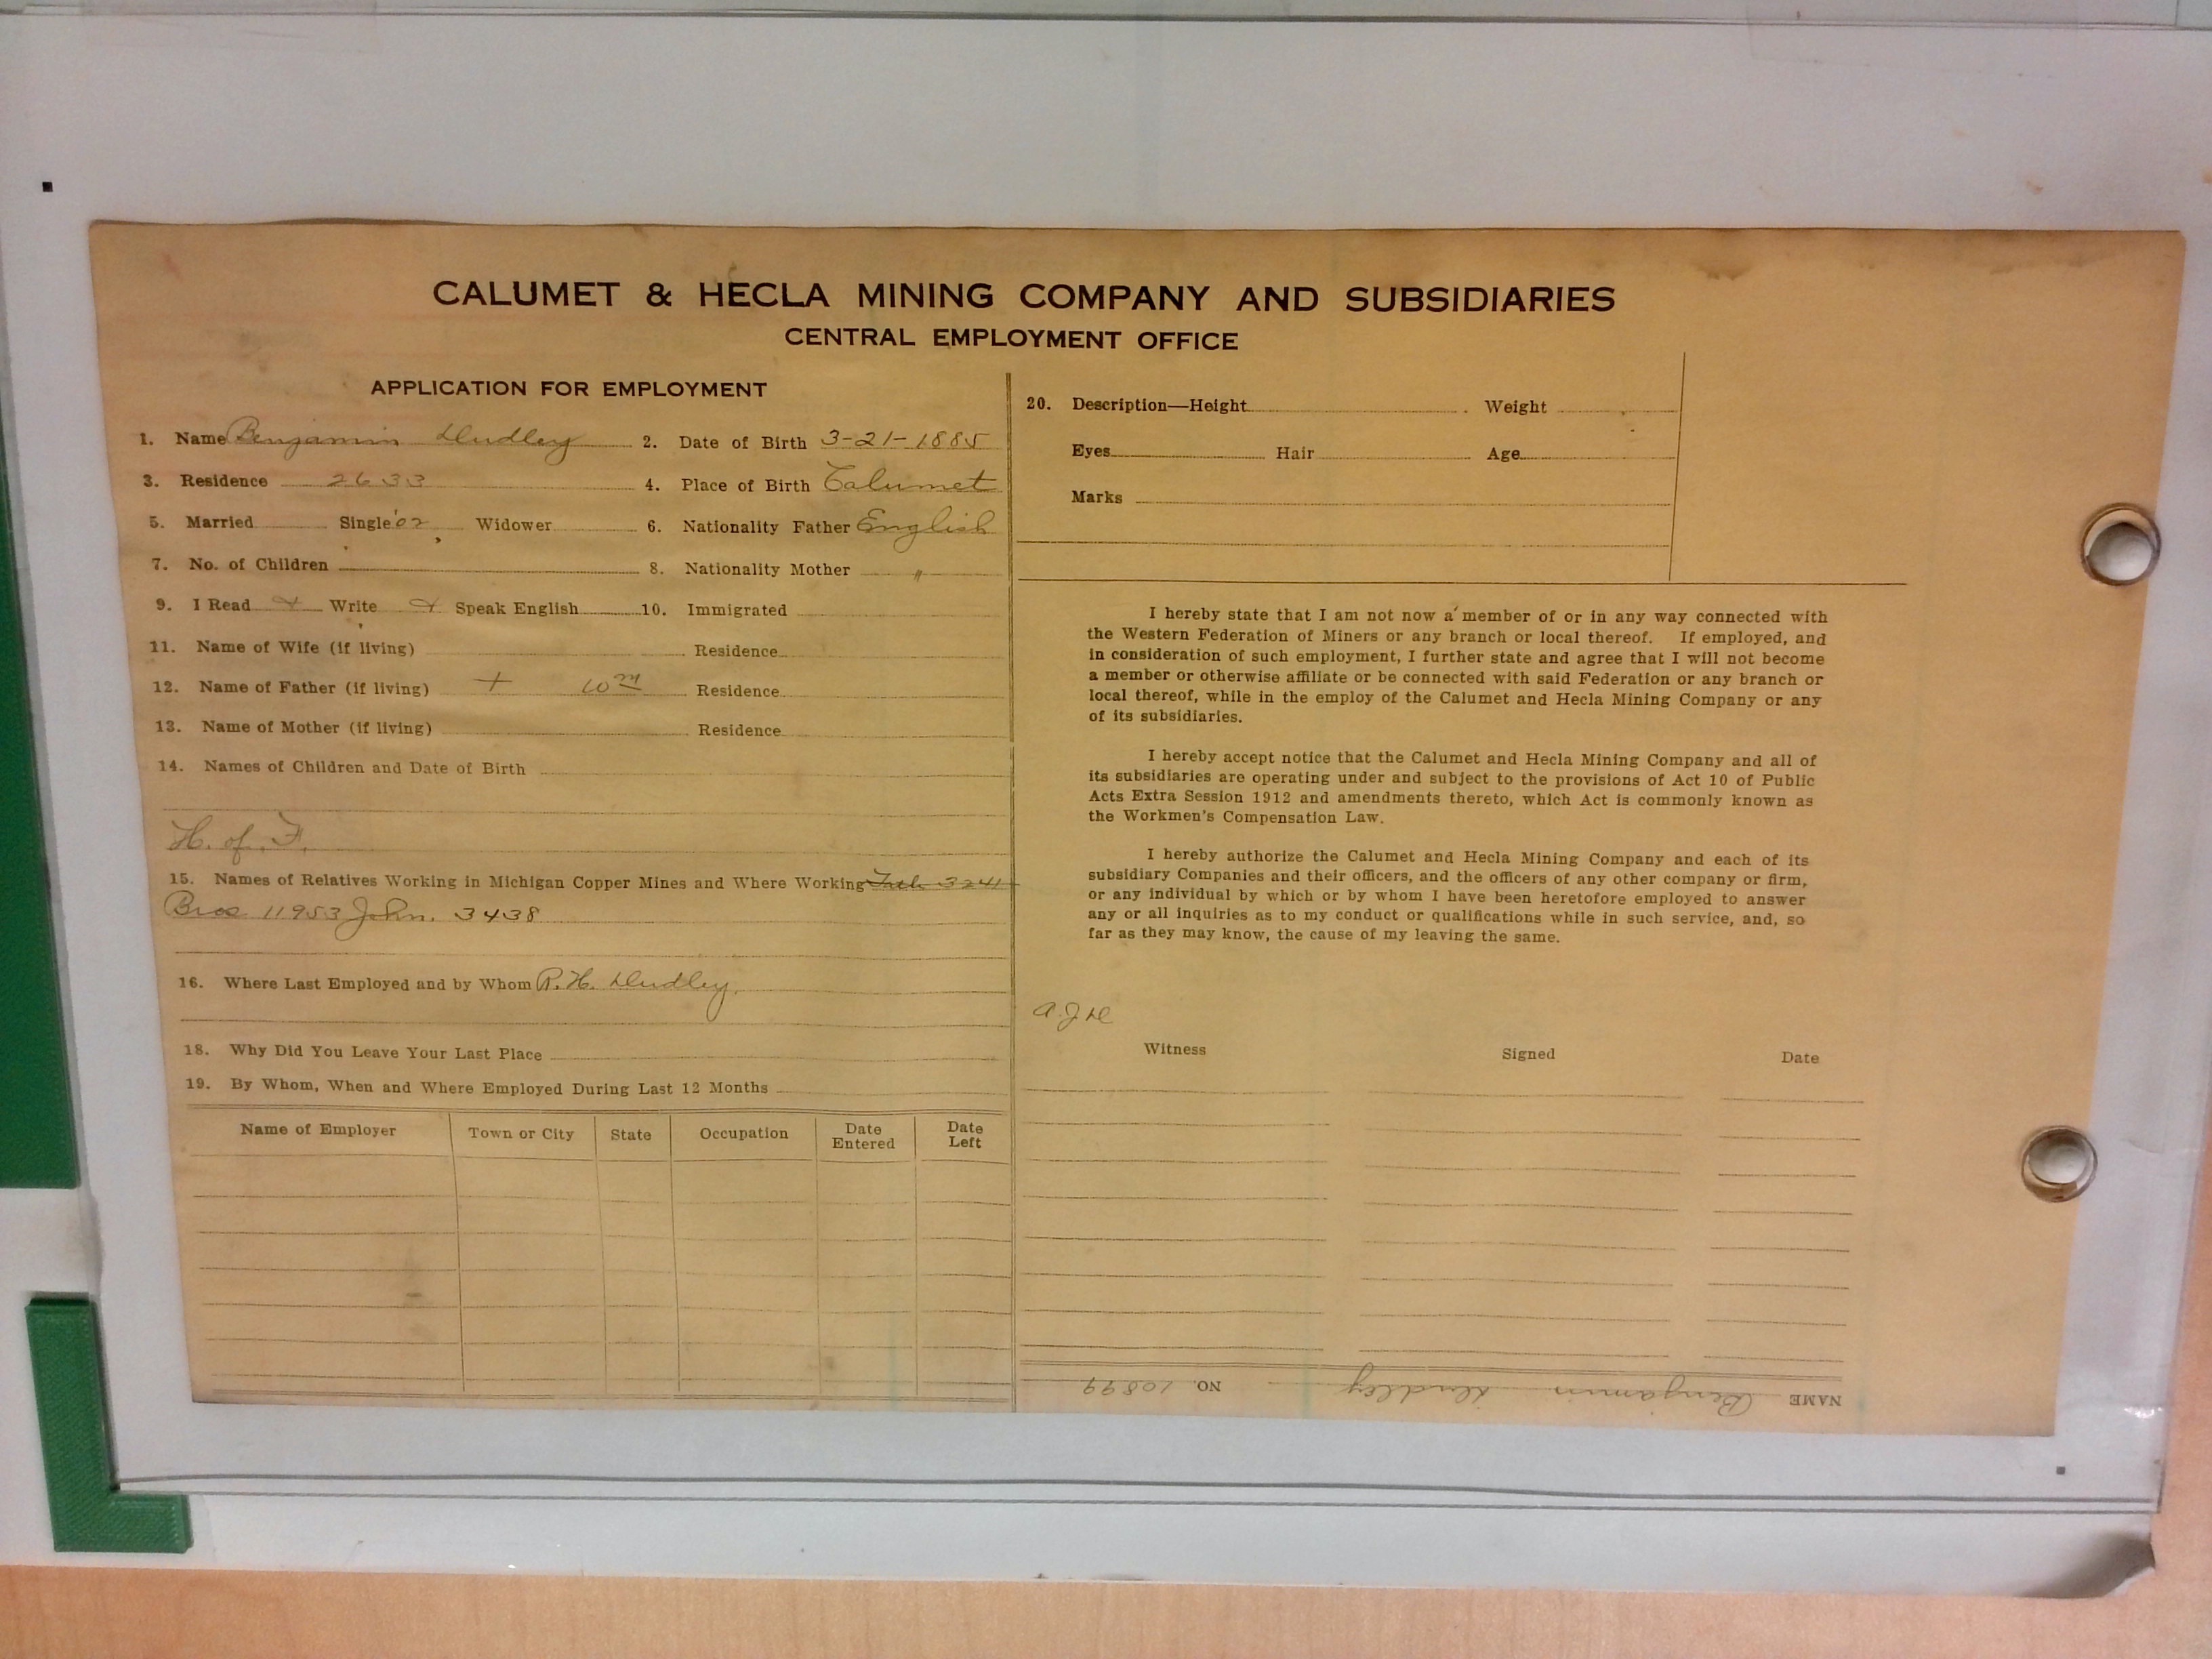 CALUMET & HECLA MINING COMPANY AND SUBSIDIARIES
CENTRAL EMPLOYMENT OFFICE
APPLICATION FOR EMPLOYMENT
1. Name Benjamin Dudley 2. Date of Birth 3-21-1885
3. Residence 2633 4. Place of Birth Calumet
5. Married Single '02 Widower 6. Nationality Father English
7. No. of Children 8. Nationality Mother "
9. I Read Write Speak English 10. Immigrated
11. Name of Wife (if living) Residence
12. Name of Father (if living) + Residence
13. Name of Mother (if living) Residence
14. Names of Children and Date of Birth
H. of F.
15. Names of Relatives Working in Michigan Copper Mines and Where Working Fath. 3241
Bros 11953 John. 3438
16. Where Last Employed and by Whom R. H. Dudley.
18. Why Did You Leave Your Last Place
19. By Whom, When and Where Employed During Last 12 Months
Name of Employer Town or City State Occupation Date Entered Date Left
20. Description—Height Weight
Eyes Hair Age
Marks
I hereby state that I am not now a member of or in any way connected with
the Western Federation of Miners or any branch or local thereof. If employed, and
in consideration of such employment, I further state and agree that I will not become
a member or otherwise affiliate or be connected with said Federation or any branch or
local thereof, while in the employ of the Calumet and Hecla Mining Company or any
of its subsidiaries.
I hereby accept notice that the Calumet and Hecla Mining Company and all of
its subsidiaries are operating under and subject to the provisions of Act 10 of Public
Acts Extra Session 1912 and amendments thereto, which Act is commonly known as
the Workmen's Compensation Law.
I hereby authorize the Calumet and Hecla Mining Company and each of its
subsidiary Companies and their officers, and the officers of any other company or firm,
or any individual by which or by whom I have been heretofore employed to answer
any or all inquiries as to my conduct or qualifications while in such service, and, so
far as they may know, the cause of my leaving the same.
Witness Signed Date
NAME Benjamin Dudley NO. 10899